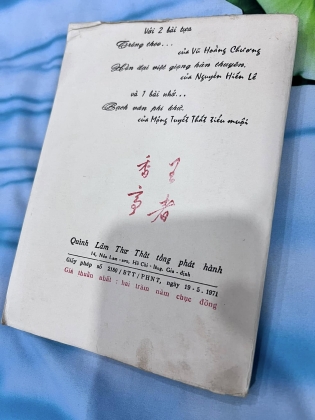 Với 2 bài tựa
Trông theo...
của Vũ Hoàng Chương
Hồn đại việt giọng hàn thuyên.
của Nguyễn Hiến Lê
và 1 bài nhớ...
Bạch vân phi khứ.
của Mộng Tuyết Thất tiểu muội
Quỳnh Lâm Thư Thất tổng phát hành
Giấy phép số 2186/BTT/PHNT, ngày 19-5-1971
Giá thuần nhất: hai trăm năm chục đồng